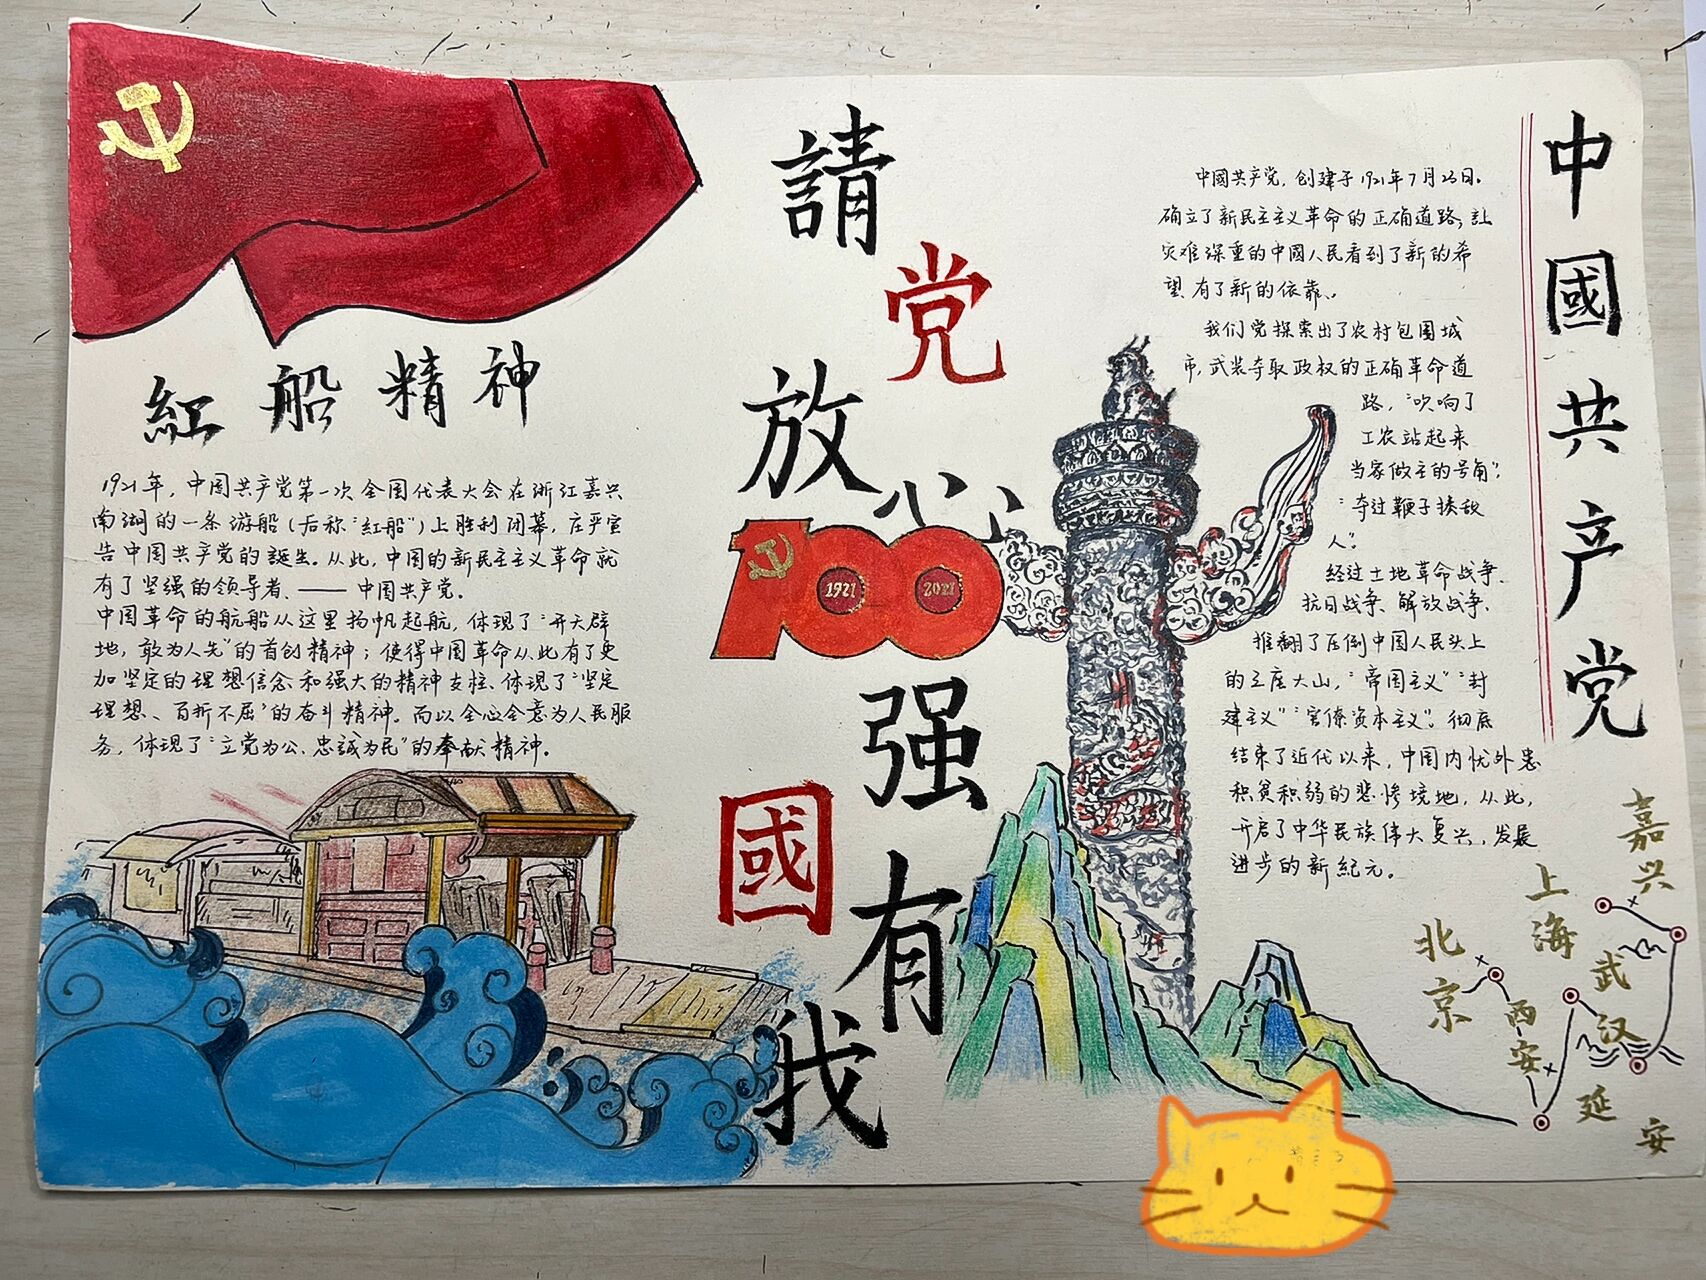 紅船精神
1921年，中国共产党第一次全国代表大会在浙江嘉兴
南湖的一条游船(后称“紅船”)上胜利闭幕，庄严宣
告中国共产党的誕生。从此，中国的新民主主义革命就
有了坚强的领导者、——中国共产党。
中国革命的航船从这里扬帆起航，体现了“开天辟
地，敢为人先”的首创精神；使得中国革命从此有了更
加坚定的理想信念和强大的精神支柱、体现了“坚定
理想、百折不屈’的奋斗精神。而以全心全意为人民服
务，体现了“立党为公、忠誠为民”的奉献精神。
請
党
放心
100
1921
2021
强
國
有
我
中國共产党
中國共产党，创建于1921年7月23日。
确立了新民主主义革命的正确道路，让
灾难深重的中國人民看到了新的希
望有了新的依靠。
我们党探索出了农村包围城
市，武装夺取政权的正确革命道
路，“吹响了
工农站起来
当家做主的号角”，
“夺过鞭子揍敌
人”。
经过土地革命战争、
抗日战争、解放战争、
推翻了压倒中国人民头上
的三座大山，“帝国主义”“封
建主义”“官僚资本主义”。彻底
结束了近代以来，中国内忧外患
积贫积弱的悲惨境地，从此，
开启了中华民族伟大复兴，发展
进步的新紀元。
嘉兴
上海
武汉
北京
西安
延安